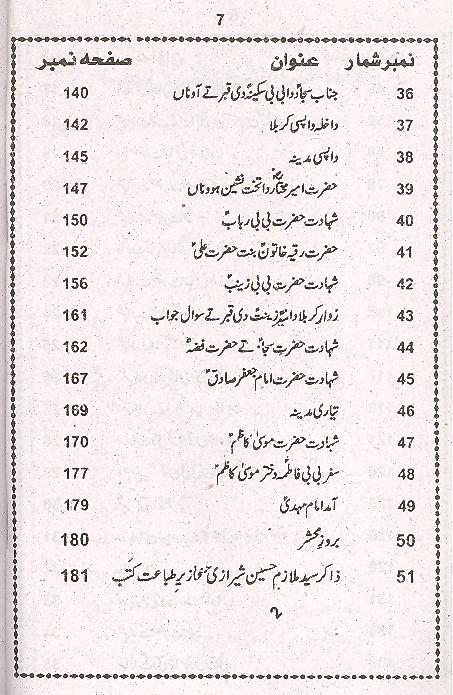 7
نمبر شمار عنوان صفحہ نمبر
36 جناب سجادؑ دا بی بی سکینہؑ دی قبر تے آوناں 140
37 داخلہ واپسی کربلا 142
38 واپسی مدینہ 145
39 حضرت امیر مختارؒ دا تخت نشین ہووناں 147
40 شہادت حضرت بی بی ربابؑ 150
41 حضرت رقیہ خاتونؑ بنت حضرت علیؑ 152
42 شہادت حضرت بی بی زینبؑ 156
43 زوار کربلا دا زینبؑ دی قبر تے سوال جواب 161
44 شہادت حضرت سجادؑ تے حضرت فضہؑ 162
45 شہادت حضرت امام جعفر صادقؑ 167
46 تیاری مدینہ 169
47 شہادت حضرت موسیٰ کاظمؑ 170
48 سفر بی بی فاطمہؑ دختر موسیٰ کاظمؑ 177
49 آمد امام مہدیؑ 179
50 بروز محشر 180
51 ذاکر سید ملازم حسین شیرازی زیر طباعت کتب 181